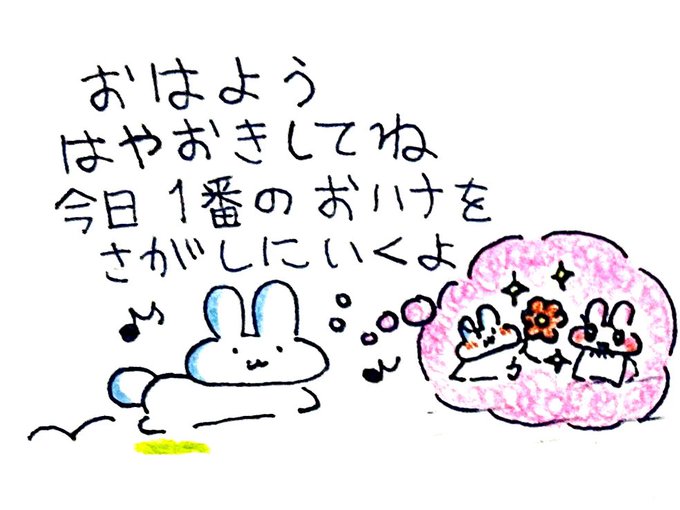 おはよう
はやおきしてね
今日1番のおハナを
さがしにいくよ